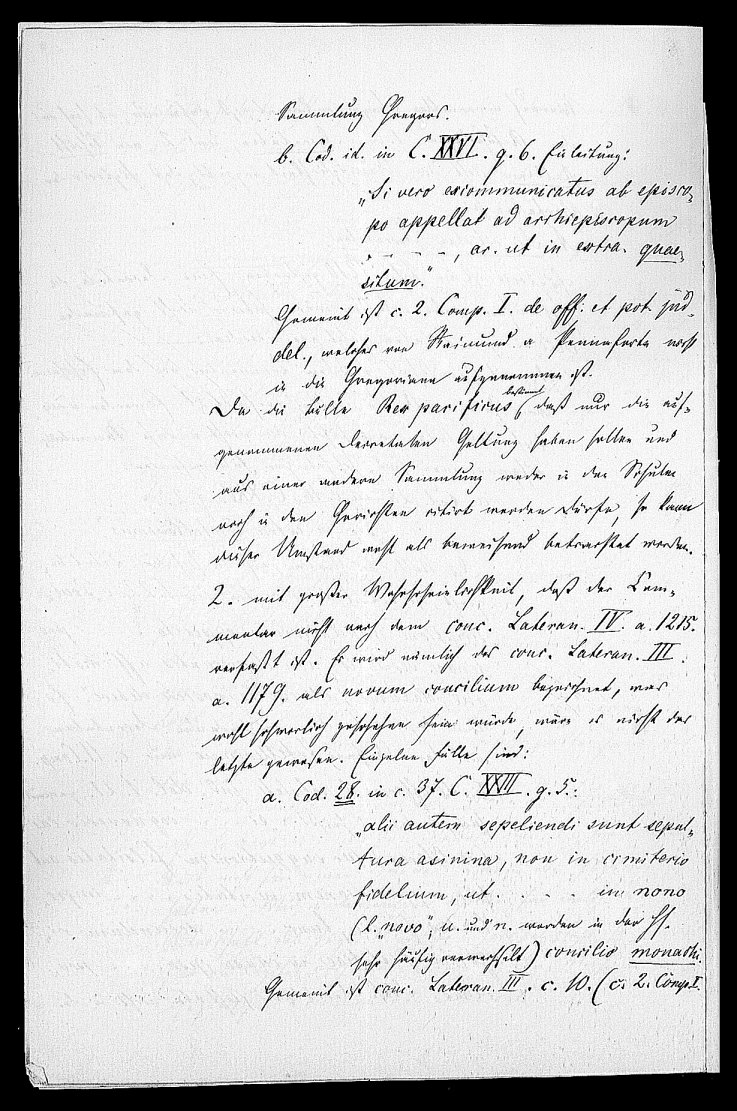 Sammlung Gregors.
b. Cod. id. in C. XXVI. q. 6. Einleitung:
„Si vero excommunicatus ab episco-
po appellat ad archiepiscopum
. - - - -, ar. ut in extra. quae-
situm."
Gemeint ist c. 2. Comp. I. de off. et pot. jud.
del., welches von Raimund a Pennaforte nicht
in die Gregoriana aufgenommen ist.
Da die Bulle Rex pacificus bestimmt, daß nur die auf-
genommenen Decretalen Geltung haben sollen und
aus einer andern Sammlung weder in den Schulen
noch in den Gerichten citirt werden dürfe, so kann
dieser Umstand wohl als beweisend betrachtet werden.
2. mit großer Wahrscheinlichkeit, daß der Com-
mentar nicht nach dem conc. Lateran. IV. a. 1215.
verfaßt ist. Es wird nämlich das conc. Lateran. III.
a. 1179. als novum concilium bezeichnet, was
wohl schwerlich geschehen sein würde, wäre es nicht das
letzte gewesen. Einzelne Fälle sind:
a. Cod. 28. in c. 37. C. XXIII. q. 5.:
„alii autem sepeliendi sunt sepul-
tura asinina, non in cimiterio
fidelium, ut . . . . in nono
(l. „novo", u. und n. werden in der Hs.
sehr häufig verwechselt) concilio monachi.
Gemeint ist conc. Lateran. III. c. 10. (c. 2. Comp. I.